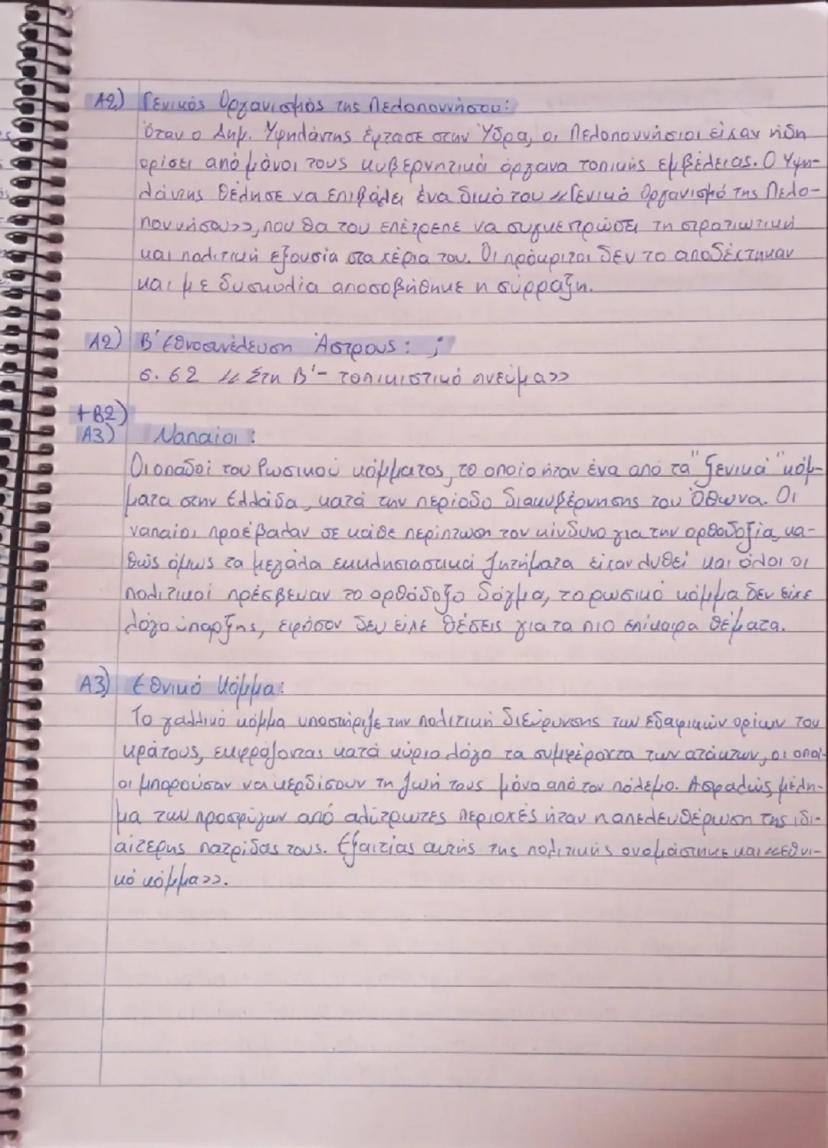 Α2) Γενικός Οργανισμός της Πελοποννήσου:
Όταν ο Δημ. Υψηλάντης έφτασε στην Ύδρα, οι Πελοποννήσιοι είχαν ήδη
ορίσει από μόνοι τους κυβερνητικά όργανα τοπικής εμβέλειας. Ο Υψη-
λάντης θέλησε να επιβάλει ένα δικό του «Γενικό Οργανισμό της Πελο-
ποννήσου», που θα του επέτρεπε να συγκετρώσει τη στρατιωτική
και πολιτική εξουσία στα χέρια του. Οι πρόκριτοι δεν το αποδέχτηκαν
και με δυσκολία αποσοβήθηκε η σύρραξη.
Α2) Β' Εθνοσυνέλευση Άστρους: ;
σ. 62 «Στη Β'- τοπικιστικό πνεύμα»
+Β2)
Α3) Ναπαίοι:
Οι οπαδοί του Ρωσικού κόμματος, το οποίο ήταν ένα από τα "ξενικά" κόμ-
ματα στην Ελλάδα, κατά την περίοδο διακυβέρνησης του Όθωνα. Οι
ναπαίοι προέβαλαν σε κάθε περίπτωση τον κίνδυνο για την ορθοδοξία, κα-
θώς όμως τα μεγάλα εκκλησιαστικά ζητήματα είχαν λυθεί και όλοι οι
πολιτικοί πρέσβευαν το ορθόδοξο δόγμα, το ρωσικό κόμμα δεν είχε
λόγο ύπαρξης, εφόσον δεν είχε θέσεις για τα πιο επίκαιρα θέματα.
Α3) Εθνικό Κόμμα:
Το γαλλικό κόμμα υποστήριζε την πολιτική διεύρυνσης των εδαφικών ορίων του
κράτους, εκφράζοντας κατά κύριο λόγο τα συμφέροντα των ατάκτων, οι οποί-
οι μπορούσαν να κερδίσουν τη ζωή τους μόνο από τον πόλεμο. Ασφαλώς, μέλη-
μα των προσφύγων από αλύτρωτες περιοχές ήταν η απελευθέρωση της ιδι-
αίτερης πατρίδας τους. Εξαιτίας αυτής της πολιτικής ονομάστηκε και «εθνι-
κό κόμμα».